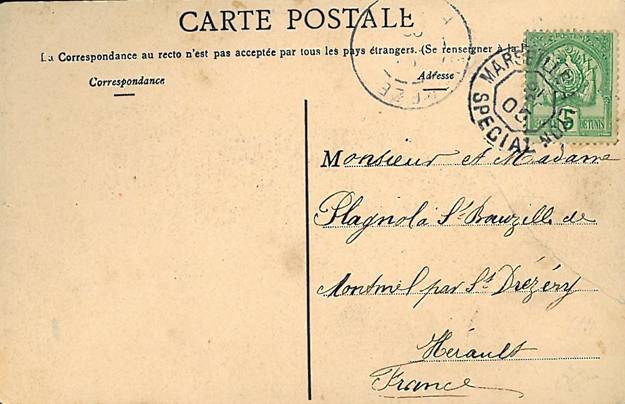 CARTE POSTALE
La Correspondance au recto n'est pas acceptée par tous les pays étrangers. (Se renseigner à la
Correspondance
Adresse
MARSEILLE
05
SPECIAL
5
DE TUNIS
Monsieur et Madame
Plagnol à St Bauzille de
Montmel par St Drézéry
Hérault
France